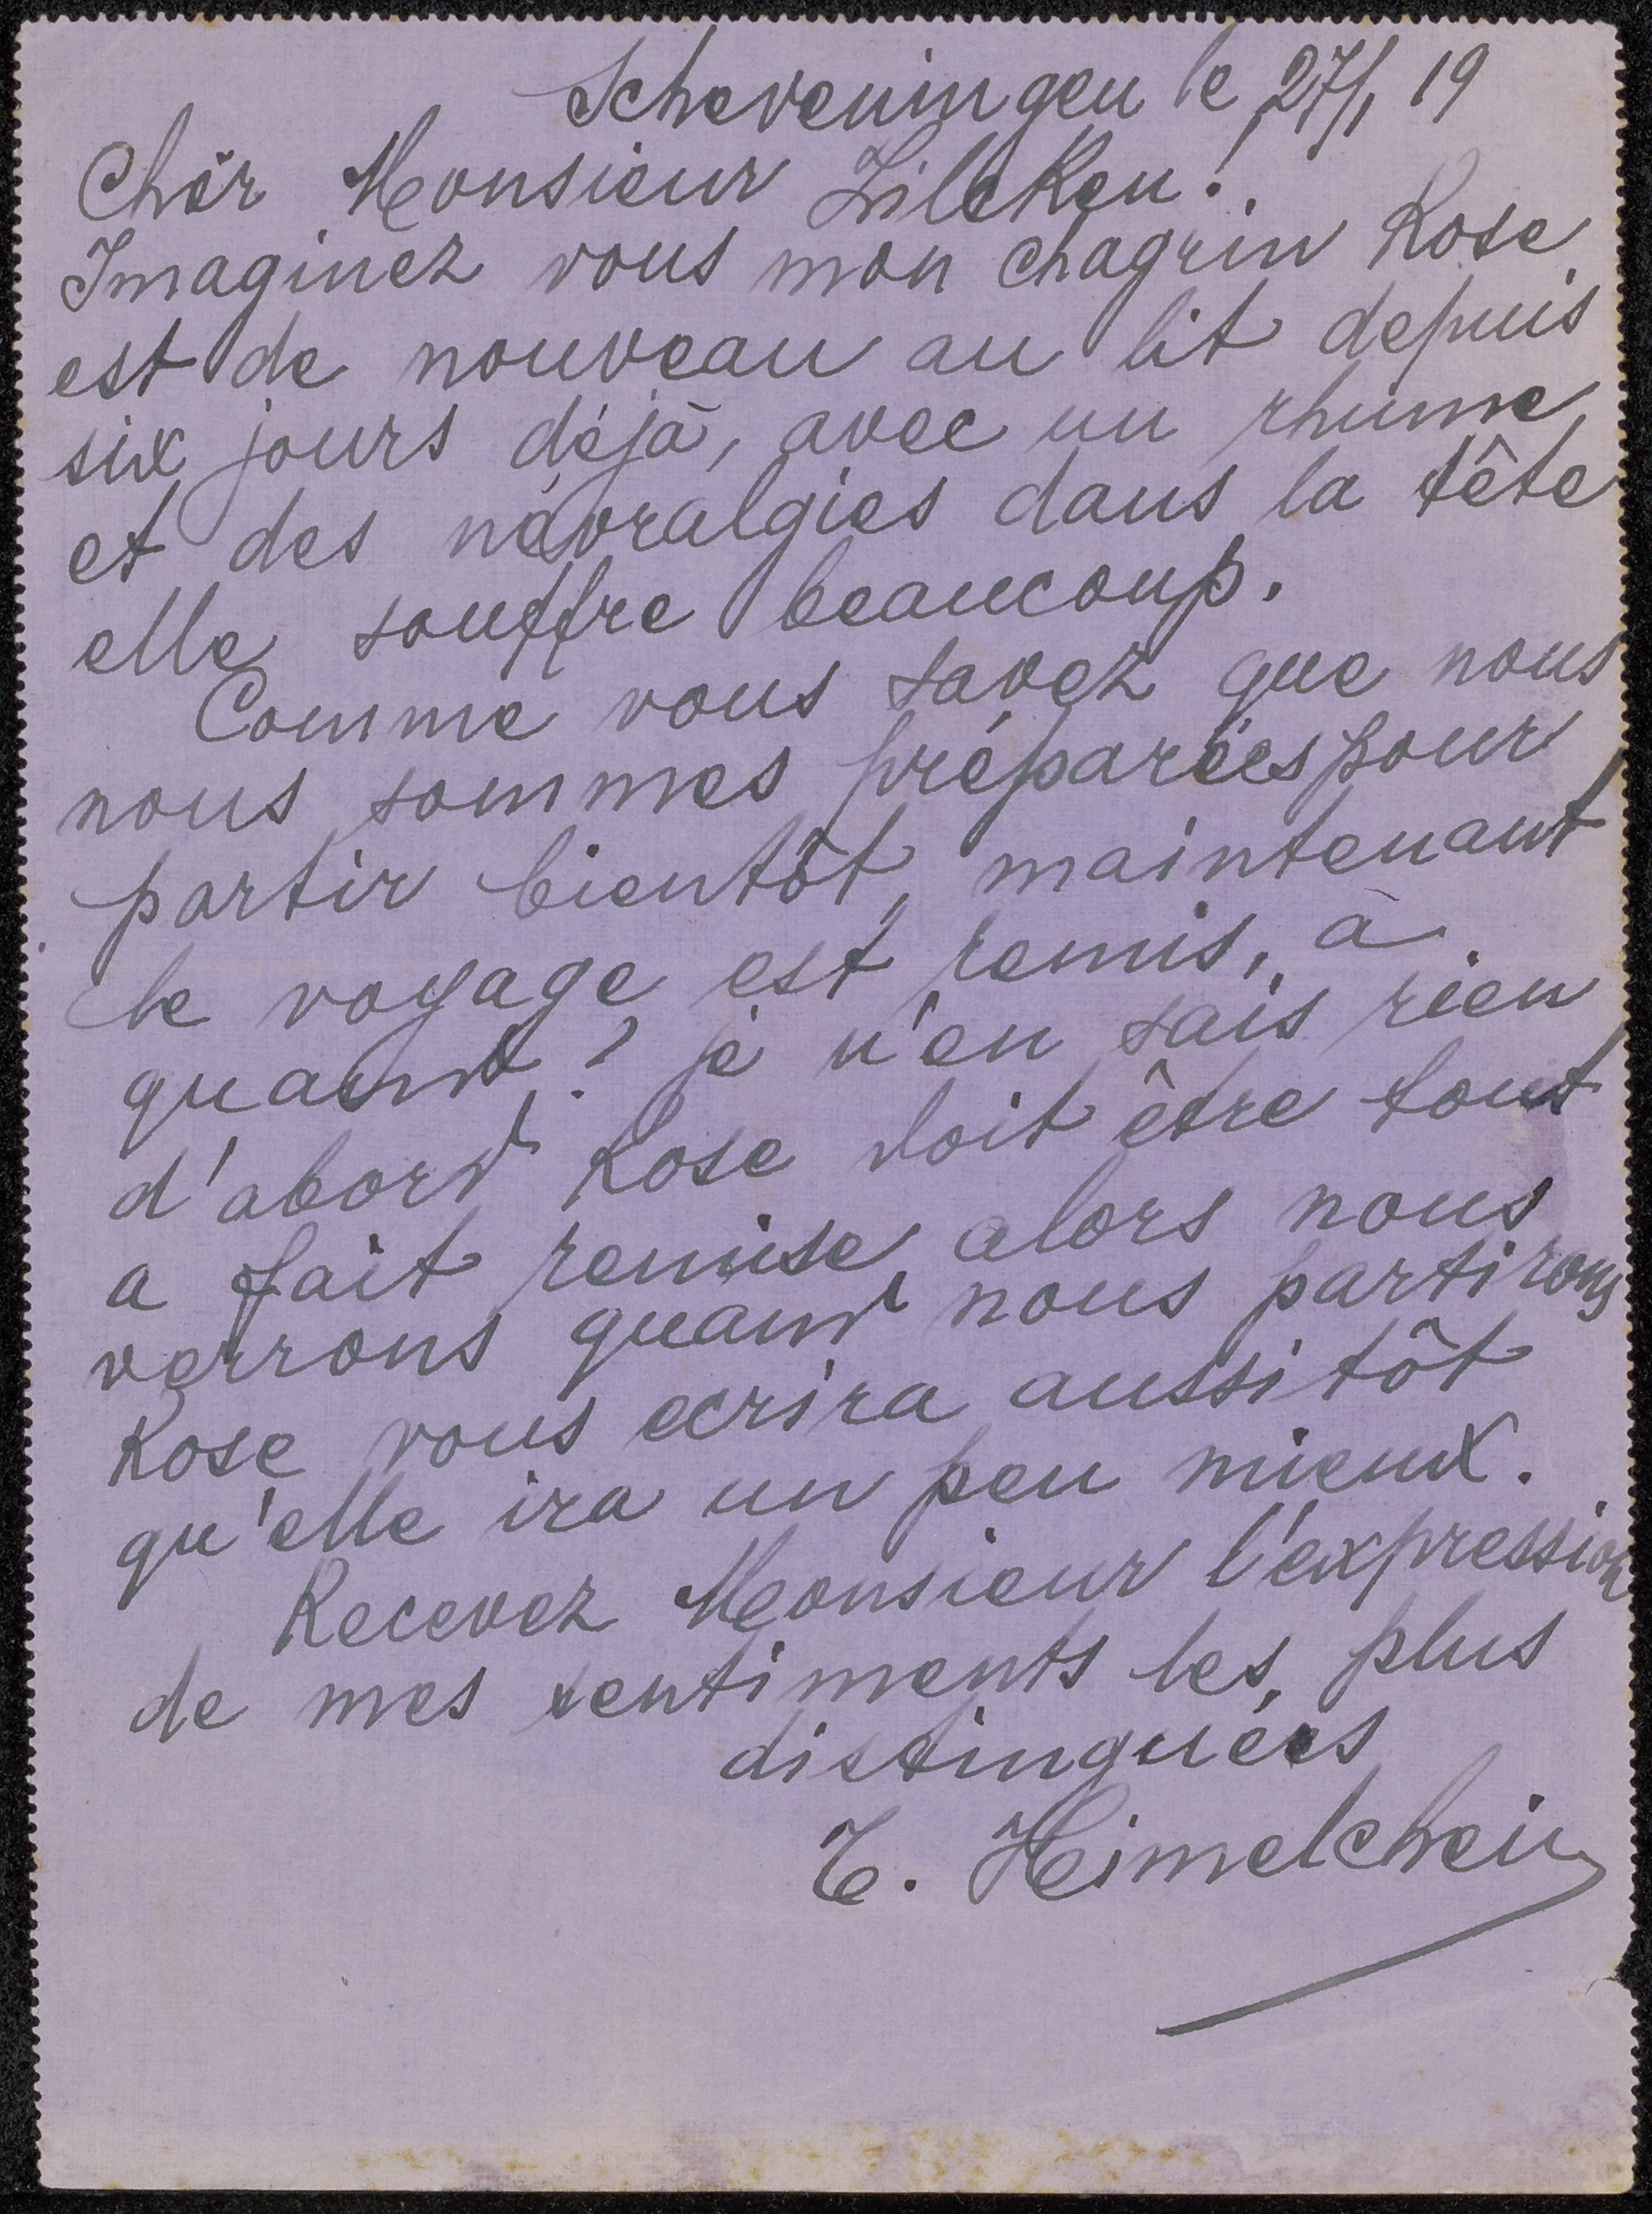 Scheveningen le 27/1 19
Chèr Monsieur Zilcken!
Imaginez vous mon chagrin Rose
est de nouveau au lit depuis
six jours déjà, avec un rhume
et des névralgies dans la tête
elle souffre beaucoup.
Comme vous savez que nous
nous sommes préparées pour
partir bientôt, maintenant
le voyage est remis, à
quand? je n'en sais rien
d'abord Rose doit être tout
a fait remise alors nous
verrons quand nous partirons
Rose vous ecrira aussitôt
qu'elle ira un peu mieux.
Recevez Monsieur l'expression
de mes sentiments les plus
distinguées